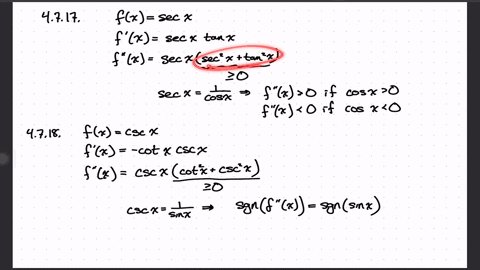 4.7.17. f(x) = sec x
f'(x) = sec x tan x
f"(x) = sec x (sec² x + tan² x)
≥0
sec x = 1/cos x ⇒ f"(x) > 0 if cos x > 0
f"(x) < 0 if cos x < 0
4.7.18. f(x) = csc x
f'(x) = -cot x csc x
f"(x) = csc x (cot² x + csc² x)
≥0
csc x = 1/sin x ⇒ sgn(f"(x)) = sgn(sin x)